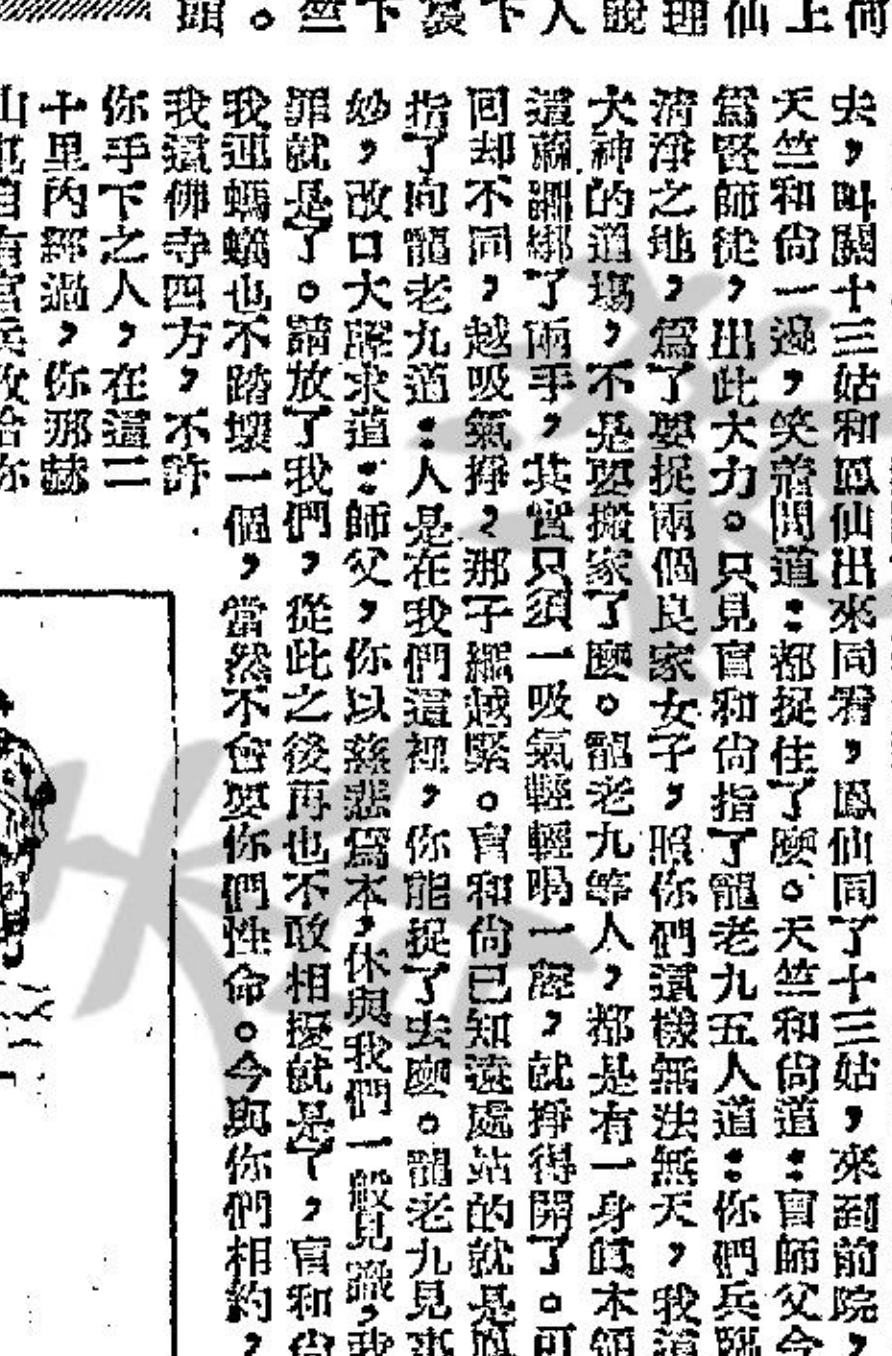 何上仙理說人下裝下竺。頭
去，叫關十三姑和鳳仙出來同看，鳳仙同了十三姑，來到前院，
天竺和尙一過，笑着問道：都捉住了麽。天竺和尙道：曹師父令
爲賢師徒，出此大力。只見曹和尙指了龍老九五人道：你們兵
淸淨之地，爲了要捉兩個良家女子，照你們這樣無法無天，我這
大神的道塲，不是要搬家了麽。龍老九等人，都是有一身眞本領
這蔴繩綁了兩手，其實只須一吸氣輕輕喝一聲，就掙得開了。可
回却不同，越吸氣掙，那子繩越緊。曹和尙已知遠處站的就是鳳
指了向龍老九道：人是在我們這裡，你能捉了去麽。龍老九見來
妙，改口大聲求道：師父，你以慈悲爲本，休與我們一般見識，我
罪就是了。請放了我們，從此之後再也不敢相擾就是了，曹和尙
我連螞蟻也不踏壞一個，當然不會要你們性命。今與你們相約，
我這佛寺四方，不許
你手下之人，在這二
十里內經過，你那赫
山也自有官兵收拾你